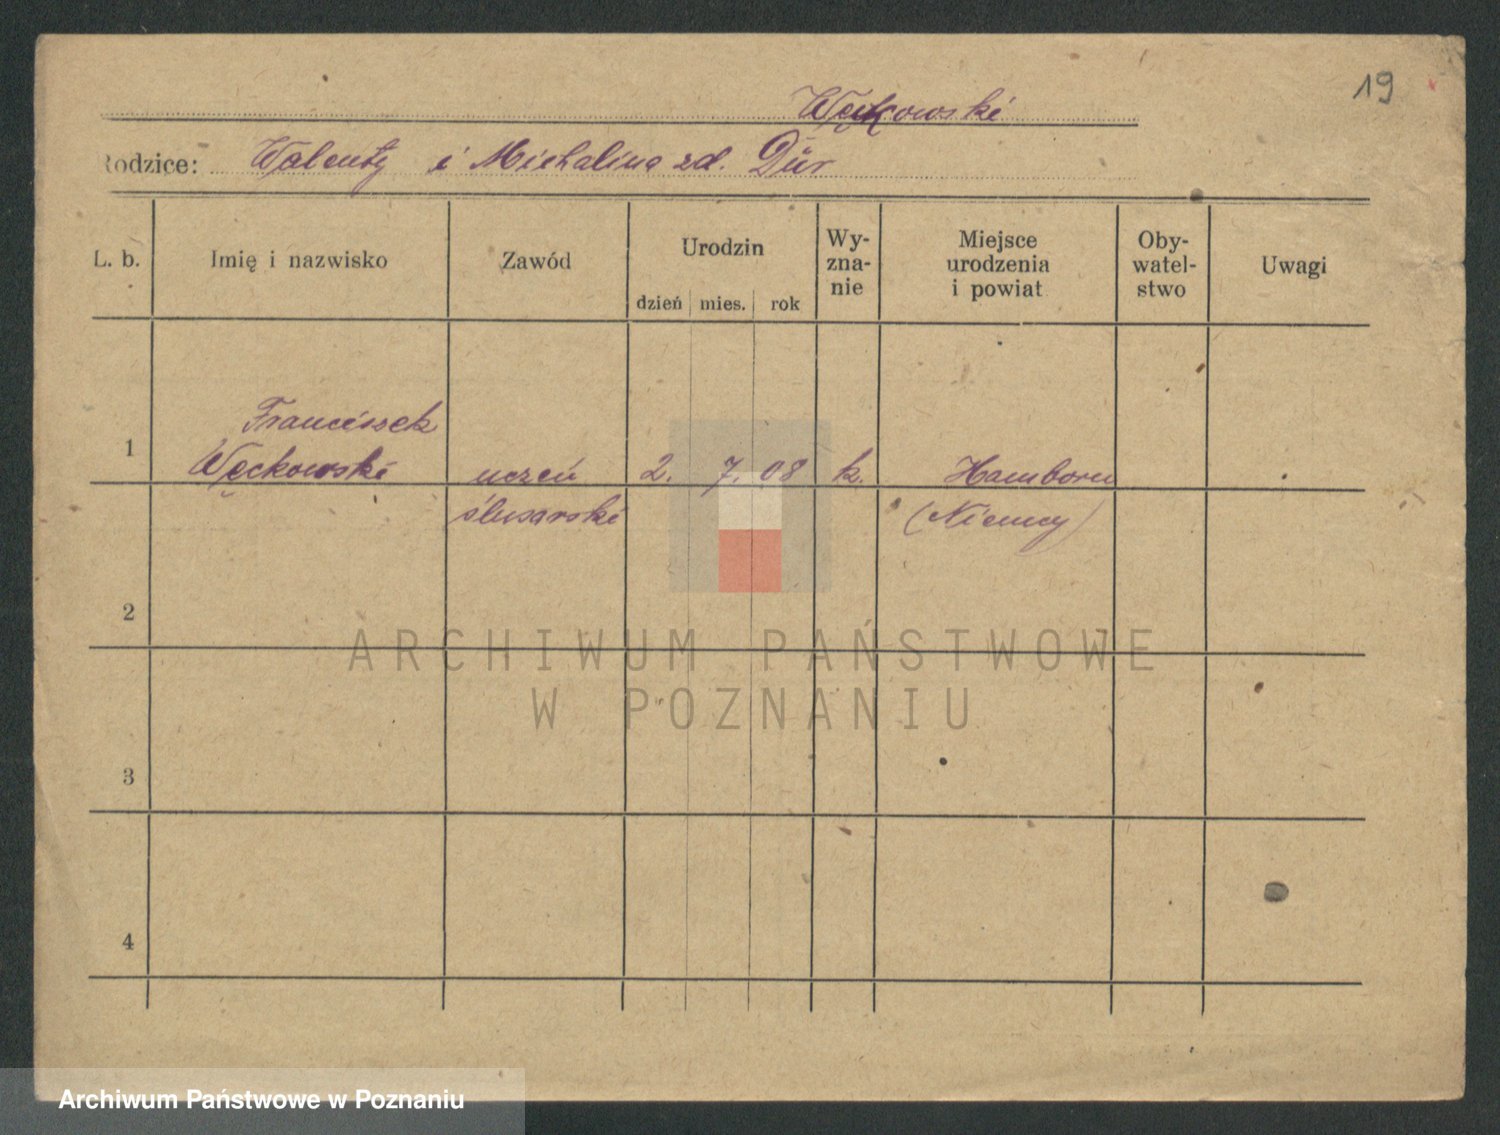 19
Węckowski
Rodzice: Walenty i Michalina zd. Dür
L. b. Imię i nazwisko Zawód Urodzin Wy-zna-nie Miejsce urodzenia i powiat Oby-watel-stwo Uwagi
dzień mies. rok
1 Franciszek
Węckowski uczeń 2. 7. 08 k. Hamborn
ślusarski (Niemcy)
2
ARCHIWUM PAŃSTWOWE
W POZNANIU
3
4
Archiwum Państwowe w Poznaniu